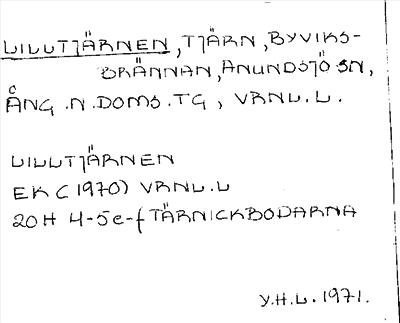 LILLTJÄRNEN, TJÄRN, BYVIKS-
BRÄNNAN, ANUNDSJÖ SN,
ÅNG. N. DOMS. TG, VRNL.L.
LILLTJÄRNEN
EK (1970) VRNL.L
20H 4-5e-f TÄRNICKBODARNA
Y.H.L. 1971.